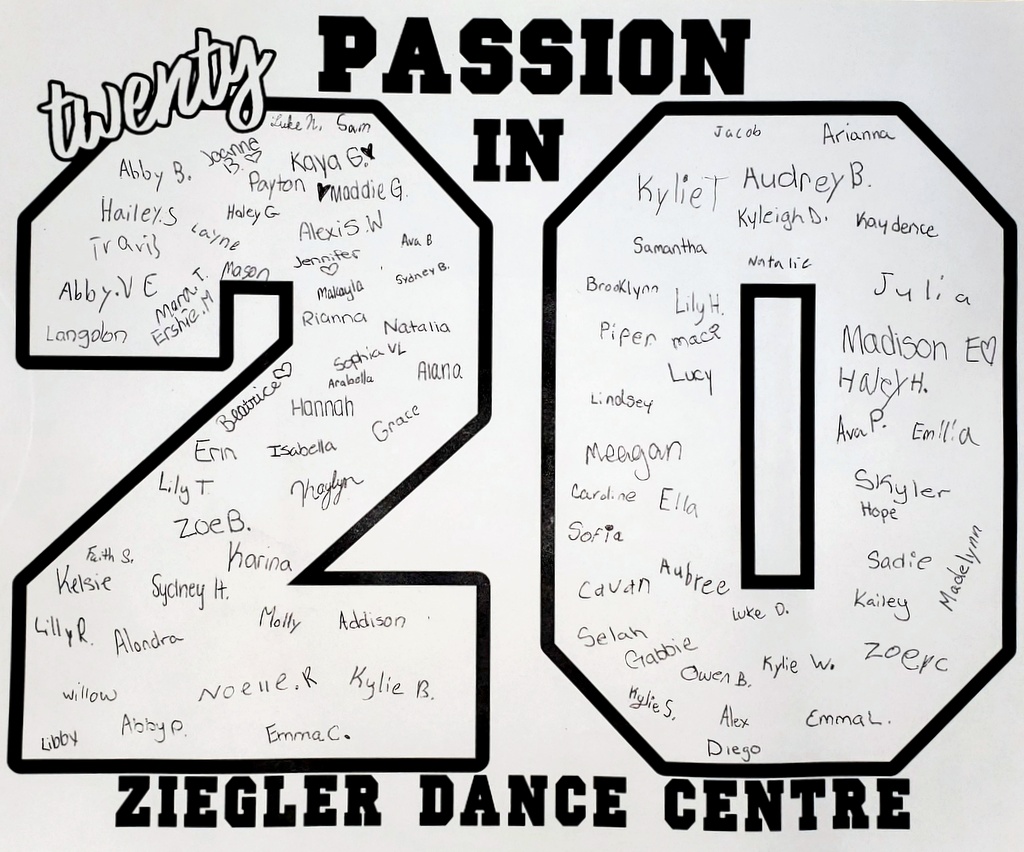 twenty
PASSION
IN
Luke N. Sam
Abby B. Joanna B. Kaya G.
Payton Maddie G.
Hailey.S Haley G
Travis Layne AlexiS.W Ava B
Mason Jennifer Sydney B.
Abby.V E Mara T. Makayla
Ershie.M Rianna Natalia
Langdon
Sophia VL
Arabella Alana
Beatrice Hannah Grace
Erin Isabella
Lily T. Khaylyn
ZoeB.
Faith S. Karina
Kelsie Sydney H.
Lilly R. Alondra Molly Addison
willow Noelle.R Kylie B.
Libby Abby P. Emma C.
Jacob Arianna
Kylie T Audrey B.
Kyleigh D. Kaydence
Samantha Natalie
Brooklynn Lily H. Julia
Piper Madison E
Lucy Haley H.
Lindsey Ava P. Emilia
Meagan
Caroline Ella Skyler
Hope
Sofia
Cavan Aubree Sadie Madelynn
Luke D. Kailey
Selah Gabbie
Owen B. Kylie W.
Kylie S. Alex Emma L.
Diego
ZIEGLER DANCE CENTRE